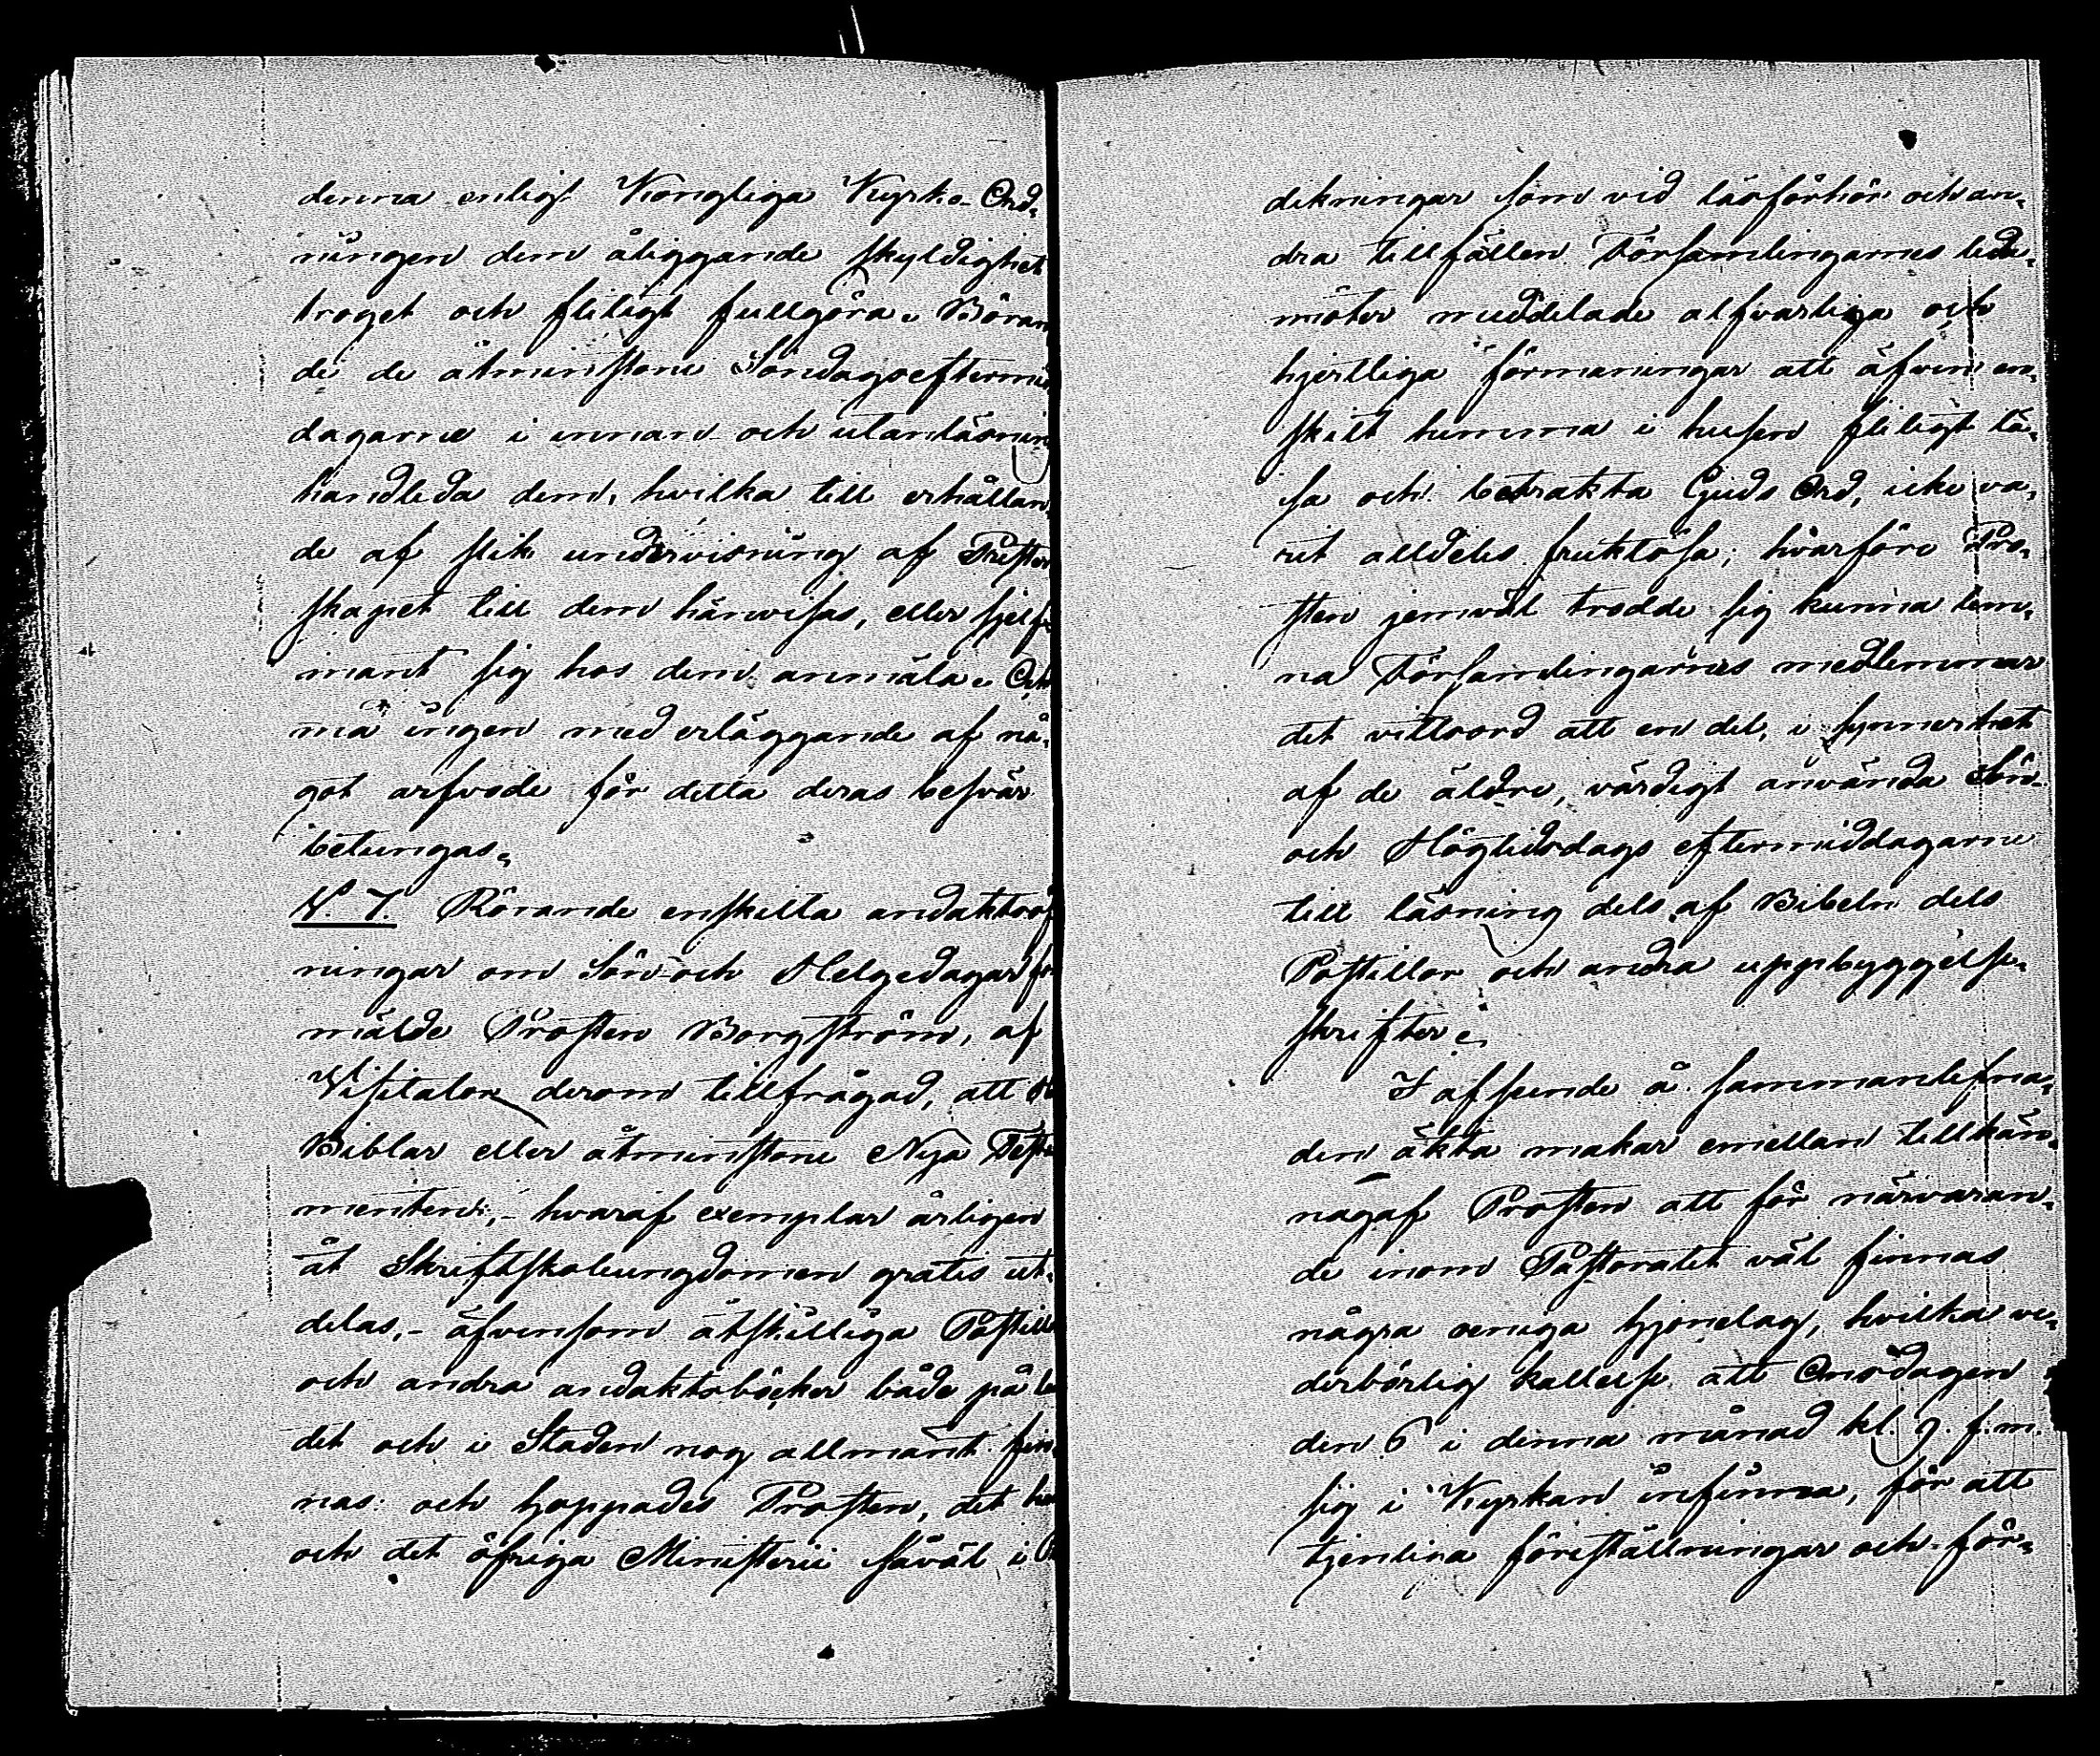 denna enligt Kongliga Kyrko-Ord-
ningen dem åliggande skyldighet
troget och flitigt fullgöra. Böran
de de åtminstone Söndagseftermid
dagarne i innan- och utanläsning
handleda dem, hvilka till erhållan-
de af slik undervisning af Prester
skapet till dem hänvisas, eller sjelf-
mant sig hos dem anmäla. Och
må ingen med erläggande af nå-
got arfvode för detta deras besvär
betungas.
§. 7. Rörande enskilta andaktsöf
ningar om Sön- och Helgedagar
mälde Prosten Borgström, af
Visitator derom tillfrågad, att
Biblar eller åtminstone Nya Testa
menten, - hvaraf exemplar årligen
åt Skriftskoleungdomen gratis ut-
delas, - äfvensom åtskilliga Postill
och andra andaktsböcker både på
det och i Staden nog allmänt fin-
nas och hoppades Prosten, det
och det öfriga Ministerii såväl i
dikningar som vid läsförhör och an-
dra tillfällen Församlingarnes leda-
möter meddelade alfvarliga och
hjertliga förmaningar att äfven en-
skilt hemma i husen flitigt lä-
sa och betrakta Guds Ord, icke va-
rit alldeles fruktlösa; hvarföre Pro-
sten jemväl trodde sig kunna lem-
na Församlingarnes medlemmar
det vittsord att en del, i synnerhet
af de äldre, värdigt använda Sön-
och Högtidsdags eftermiddagarne
till läsning dels af Bibeln dels
Postillor och andra uppbyggelse-
skrifter.
I afseende å sammanlefna-
den äkta makar emellan tillkän-
nagaf Prosten att för närvaran-
de inom Pastoratet väl finnas
några oeniga hjonelag, hvilka ve-
derbörlig kallelse att Onsdagen
den 6 i denna månad kl. 9. f.m.
sig i Kyrkan infinna, för att
tjenliga föreställningar och för-